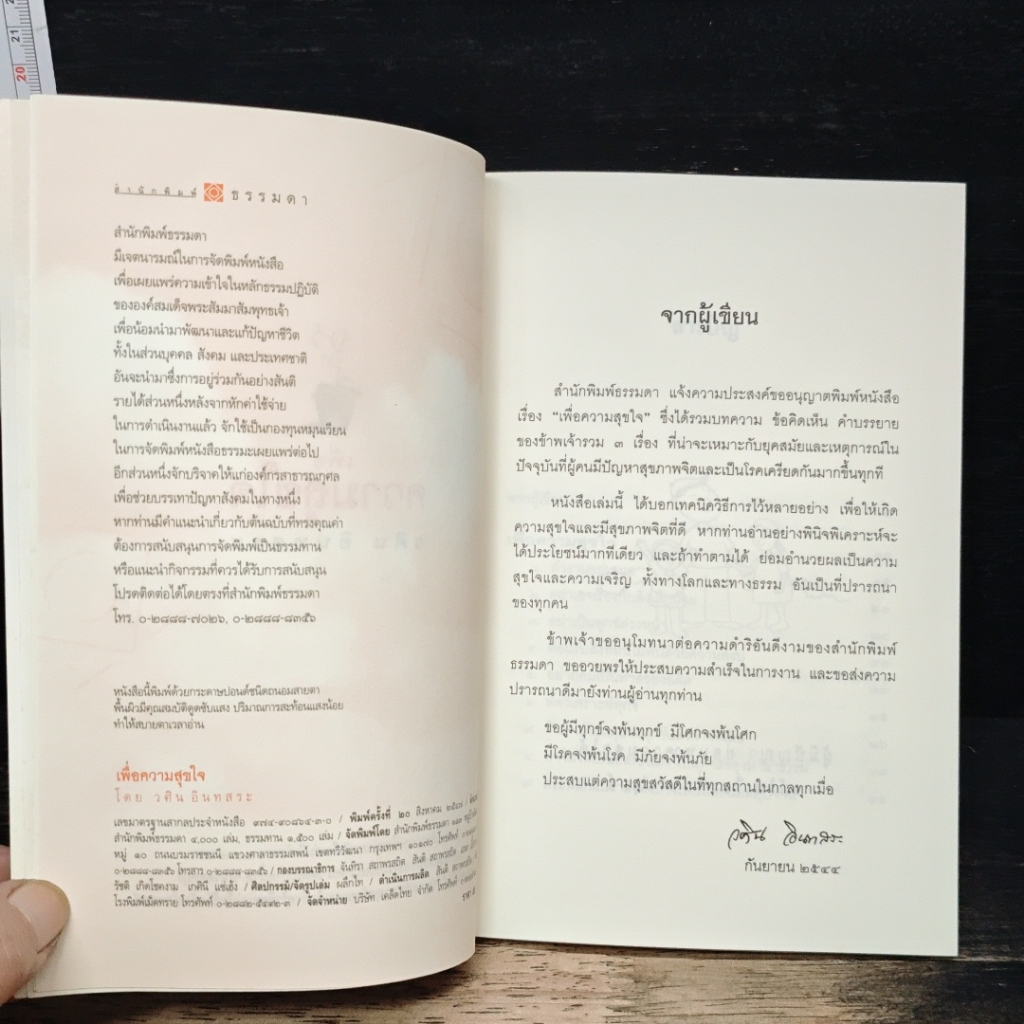 21
20
สำนักพิมพ์ ธรรมดา
สำนักพิมพ์ธรรมดา
มีเจตนารมณ์ในการจัดพิมพ์หนังสือ
เพื่อเผยแพร่ความเข้าใจในหลักธรรมปฏิบัติ
ขององค์สมเด็จพระสัมมาสัมพุทธเจ้า
เพื่อน้อมนำมาพัฒนาและแก้ปัญหาชีวิต
ทั้งในส่วนบุคคล สังคม และประเทศชาติ
อันจะนำมาซึ่งการอยู่ร่วมกันอย่างสันติ
รายได้ส่วนหนึ่งหลังจากหักค่าใช้จ่าย
ในการดำเนินงานแล้ว จักใช้เป็นกองทุนหมุนเวียน
ในการจัดพิมพ์หนังสือธรรมะเผยแพร่ต่อไป
อีกส่วนหนึ่งจักบริจาคให้แก่องค์กรสาธารณกุศล
เพื่อช่วยบรรเทาปัญหาสังคมในทางหนึ่ง
หากท่านมีคำแนะนำเกี่ยวกับต้นฉบับที่ทรงคุณค่า
ต้องการสนับสนุนการจัดพิมพ์เป็นธรรมทาน
หรือแนะนำกิจกรรมที่ควรได้รับการสนับสนุน
โปรดติดต่อได้โดยตรงที่สำนักพิมพ์ธรรมดา
โทร. ๐-๒๘๘๘-๗๐๒๖, ๐-๒๘๘๘-๘๓๕๖
หนังสือนี้พิมพ์ด้วยกระดาษปอนด์ชนิดถนอมสายตา
พื้นผิวมีคุณสมบัติดูดซับแสง ปริมาณการสะท้อนแสงน้อย
ทำให้สบายตาเวลาอ่าน
เพื่อความสุขใจ
โดย วศิน อินทสระ
เลขมาตรฐานสากลประจำหนังสือ ๙๗๔-๙๐๘๖๔-๓-๐ / พิมพ์ครั้งที่ ๒๐ สิงหาคม ๒๕๔๗ /
สำนักพิมพ์ธรรมดา ๔,๐๐๐ เล่ม, ธรรมทาน ๑,๕๐๐ เล่ม / จัดพิมพ์โดย สำนักพิมพ์ธรรมดา
หมู่ ๑๐ ถนนบรมราชชนนี แขวงศาลาธรรมสพน์ เขตทวีวัฒนา กรุงเทพฯ ๑๐๑๗๐ โทรศัพท์
๐-๒๘๘๘-๘๓๕๖ โทรสาร ๐-๒๘๘๘-๘๓๕๖ / กองบรรณาธิการ จันทิรา สถาพรสถิต สันติ สถาพรสถิต
รัชติ เกิดโชคงาม เกศินี แซ่เฮ้ง / ศิลปกรรม/จัดรูปเล่ม ผลึกไท / ดำเนินการผลิต สันติ
โรงพิมพ์เม็ดทราย โทรศัพท์ ๐-๒๘๘๒-๕๔๙๒-๓ / จัดจำหน่าย บริษัท เคล็ดไทย จำกัด โทรศัพท์
ราคา
จากผู้เขียน
สำนักพิมพ์ธรรมดา แจ้งความประสงค์ขออนุญาตพิมพ์หนังสือ
เรื่อง “เพื่อความสุขใจ” ซึ่งได้รวมบทความ ข้อคิดเห็น คำบรรยาย
ของข้าพเจ้ารวม ๓ เรื่อง ที่น่าจะเหมาะกับยุคสมัยและเหตุการณ์ใน
ปัจจุบันที่ผู้คนมีปัญหาสุขภาพจิตและเป็นโรคเครียดกันมากขึ้นทุกที
หนังสือเล่มนี้ ได้บอกเทคนิควิธีการไว้หลายอย่าง เพื่อให้เกิด
ความสุขใจและมีสุขภาพจิตที่ดี หากท่านอ่านอย่างพินิจพิเคราะห์จะ
ได้ประโยชน์มากทีเดียว และถ้าทำตามได้ ย่อมอำนวยผลเป็นความ
สุขใจและความเจริญ ทั้งทางโลกและทางธรรม อันเป็นที่ปรารถนา
ของทุกคน
ข้าพเจ้าขออนุโมทนาต่อความดำริอันดีงามของสำนักพิมพ์
ธรรมดา ขออวยพรให้ประสบความสำเร็จในการงาน และขอส่งความ
ปรารถนาดีมายังท่านผู้อ่านทุกท่าน
ขอผู้มีทุกข์จงพ้นทุกข์ มีโศกจงพ้นโศก
มีโรคจงพ้นโรค มีภัยจงพ้นภัย
ประสบแต่ความสุขสวัสดีในที่ทุกสถานในกาลทุกเมื่อ
วศิน อินทสระ
กันยายน ๒๕๔๔